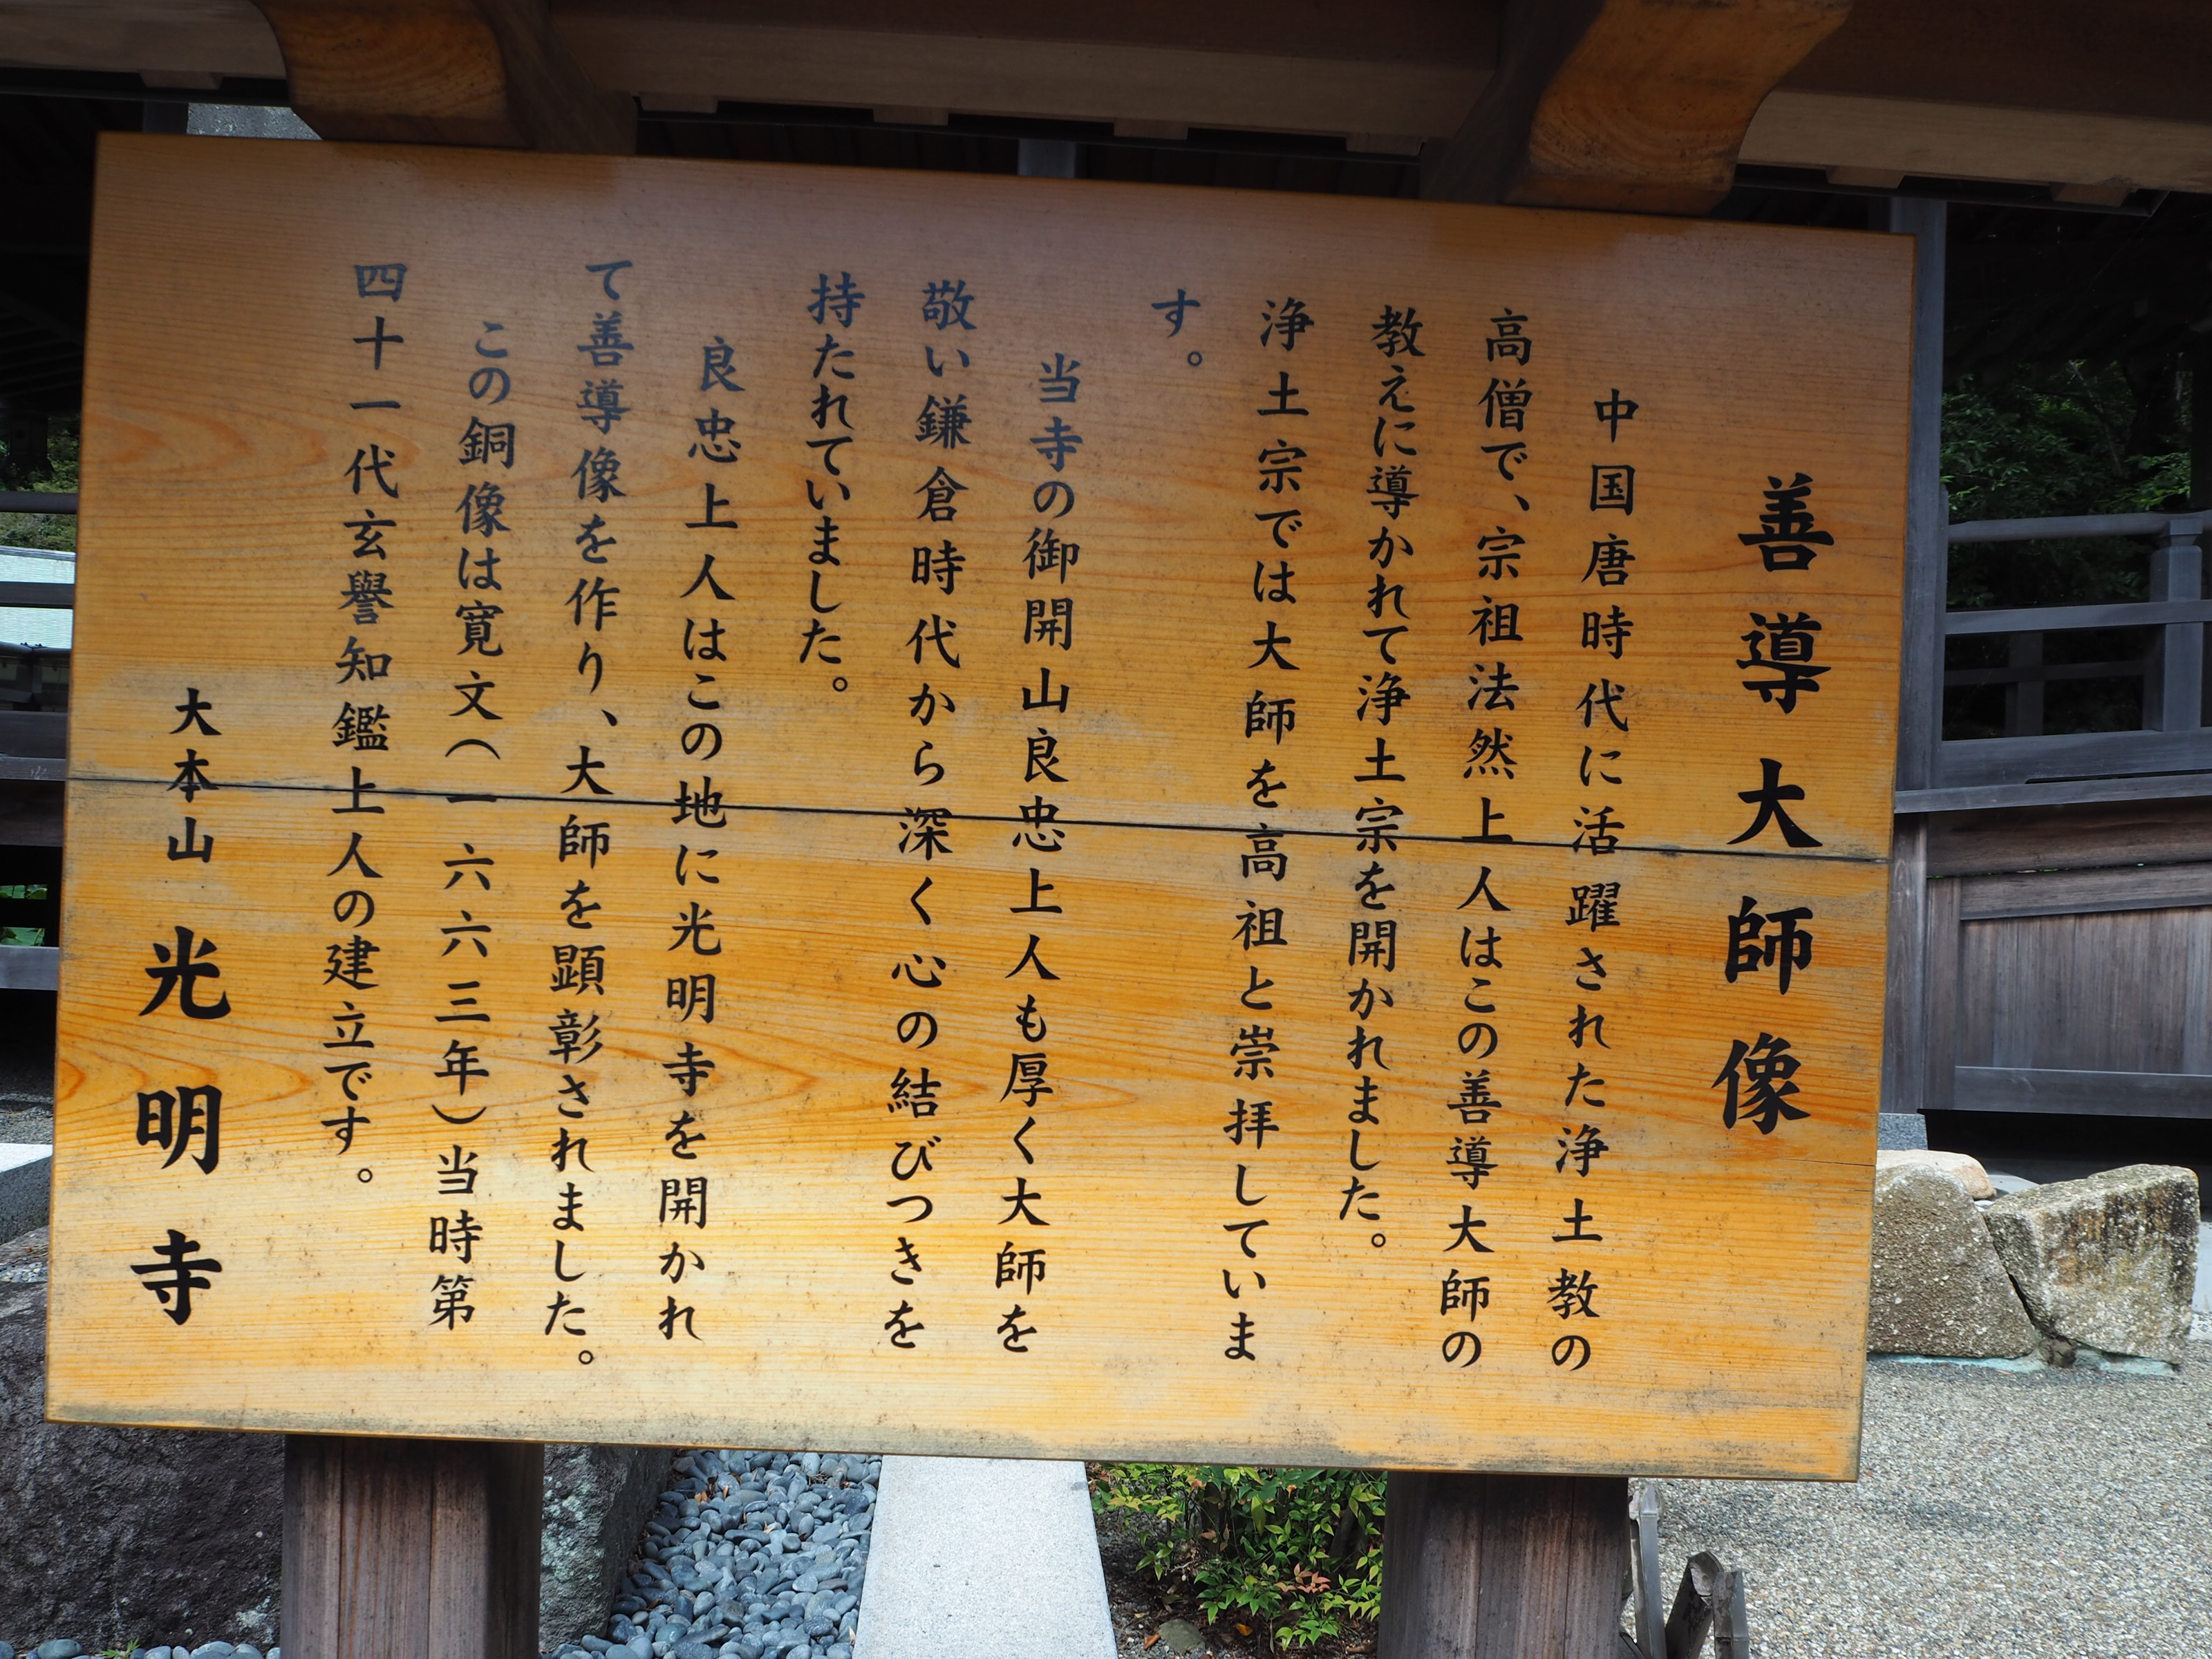 善導大師像
中国唐時代に活躍された浄土教の
高僧で、宗祖法然上人はこの善導大師の
教えに導かれて浄土宗を開かれました。
浄土宗では大師を高祖と崇拝していま
す。
当寺の御開山良忠上人も厚く大師を
敬い鎌倉時代から深く心の結びつきを
持たれていました。
良忠上人はこの地に光明寺を開かれ
て善導像を作り、大師を顕彰されました。
この銅像は寛文(一六六三年)当時第
四十一代玄譽知鑑上人の建立です。
大本山 光明寺